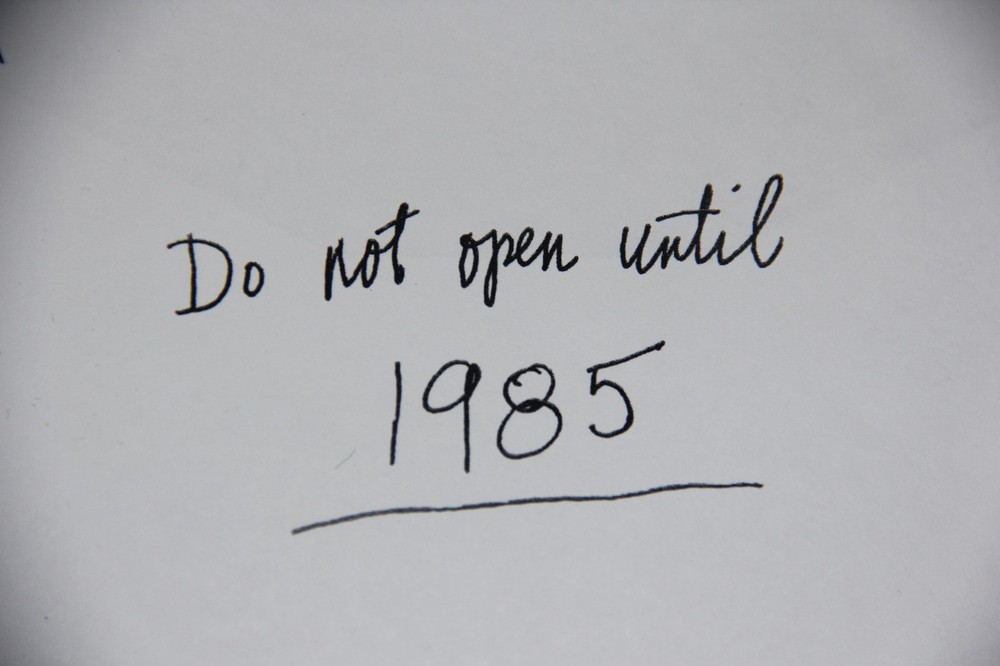 Do not open until
1985